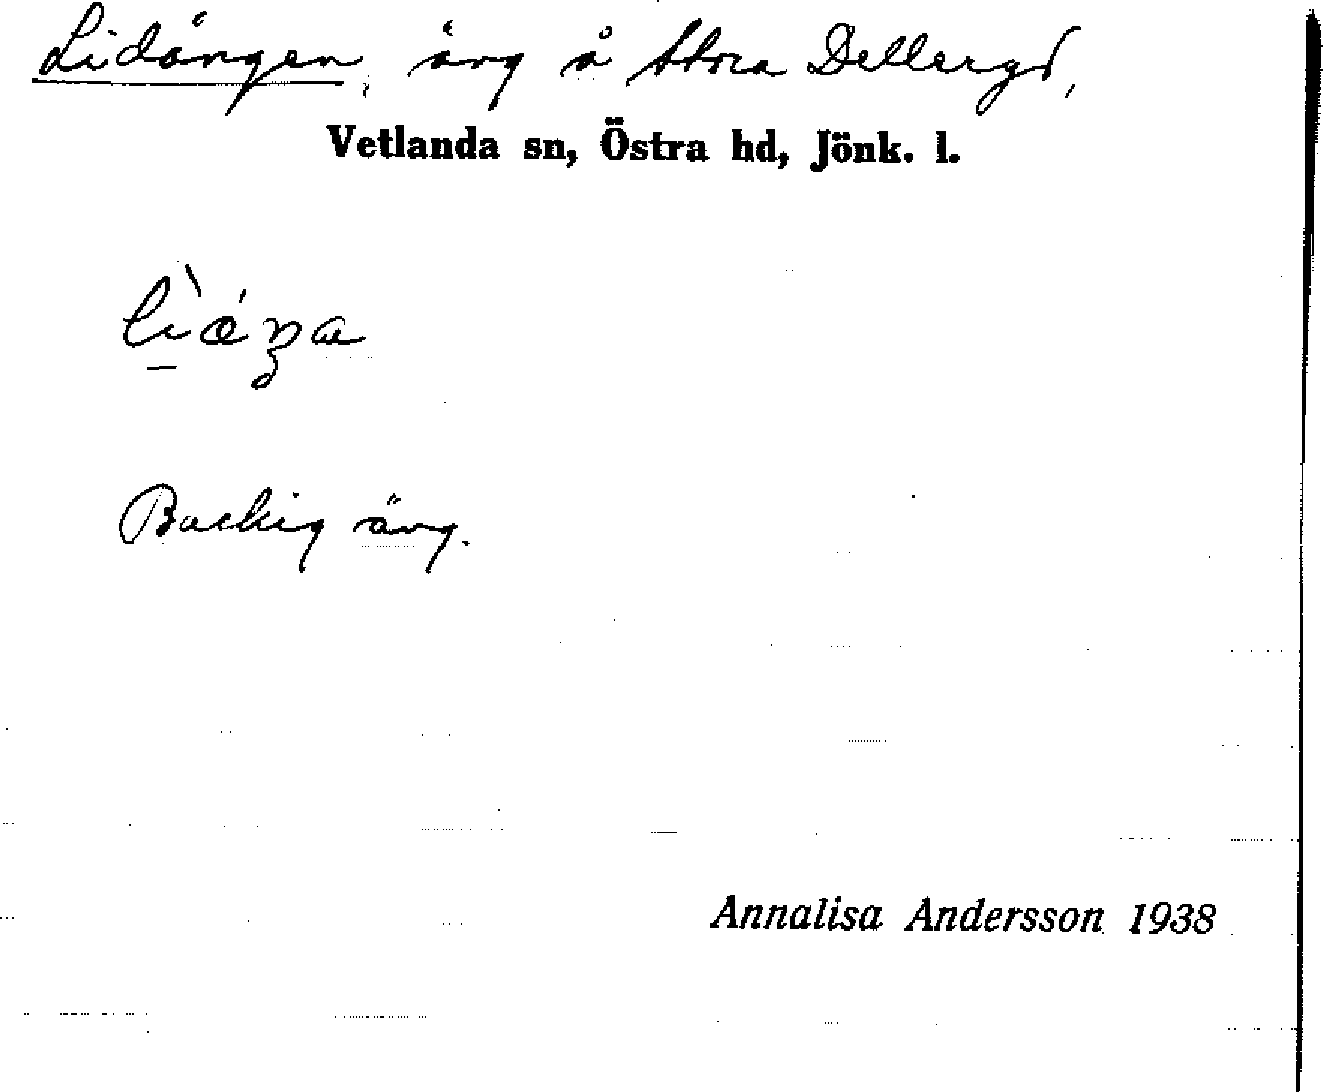 Lidängen, äng å Stora Dellarp,
Vetlanda sn, Östra hd, Jönk. l.
Backig äng.
Annalisa Andersson 1938